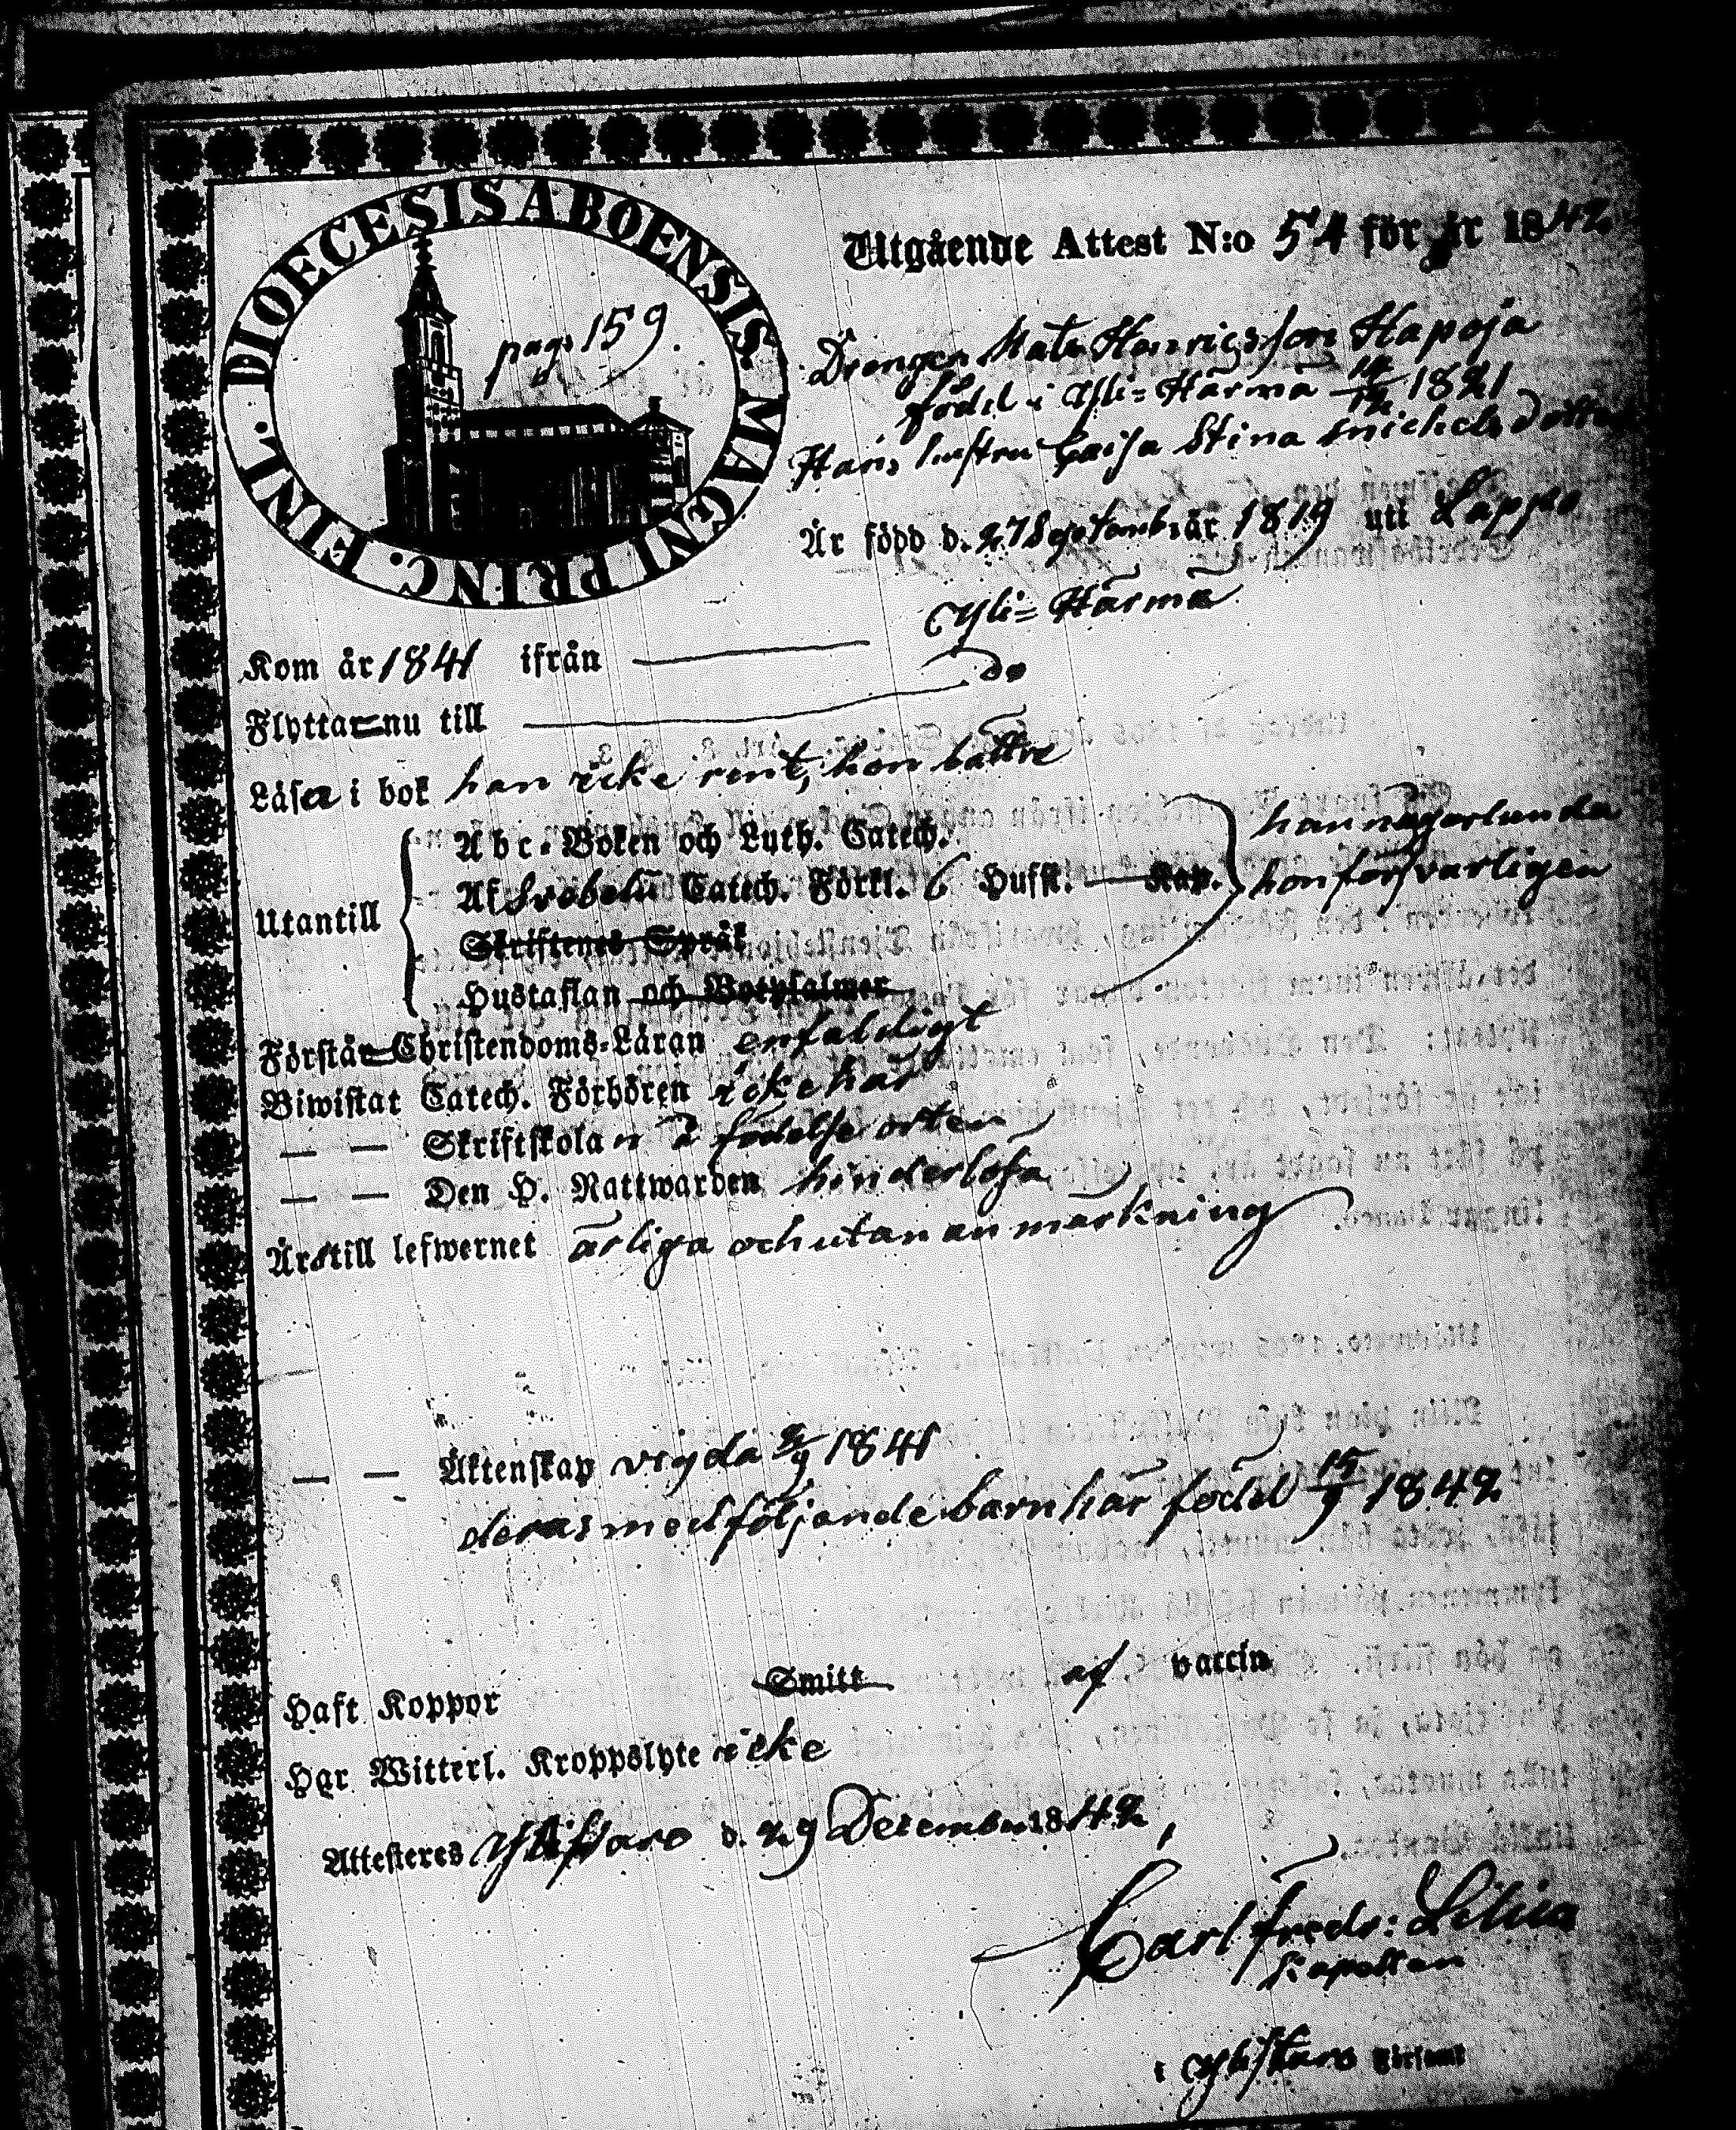 DIOECESIS ABOENSIS MAGNI PRINC. FINL.
pag. 159.
Utgående Attest N:o 54 för år 1842
Drengen Mats Henricsson Hapoja
född i Yli=Härmä 14/12 1821
Hans hustru Caisa Stina Michelsdotter
Är född d. 27 September år 1819 uti Lappo
Kom år 1841 ifrån Yli=Härmä
Flyttar nu till do
Läsa i bok han icke rent, hon bättre
Utantill
Abc-Boken och Luth. Catech.
Af Svebelii Catech. Förkl. 6 Hufst. Kap.
Skriftenes Språk
Hustaflan och Botpsalmer
han någorlunda
hon försvarligen
Förstår Christendoms-Läran enfaldigt
Biwistat Catech. Förhören icke här
— — Skriftskolan å födelse orten
— — Den H. Nattwarden hinderlösa
Är till lefwernet ärliga och utan anmärkning
— — Äktenskap vigda 2/9 1841
deras medföljande barn här född 15/9 1842
Haft Koppor Smitt af vaccin
Har Witterl. Kroppslyte icke
Attesteres Ylistaro d. 29 December 1842,
Carl Fredr:
Kapellan
i Ylistaro